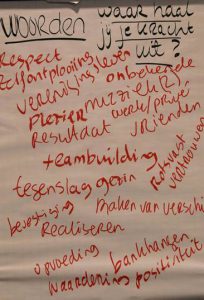 woorden
waar haal
jij je kracht
uit?
Respect
Zelfontplooiing
verenigingsleven
onbekende
plezier muziek(?)
resultaat werk/privé
vrienden
teambuilding
tegenslag gezin
rotsvast
vertrouwen
bevestiging
maken van verschil
Realiseren
opvoeding bankhangen
waardering positiviteit